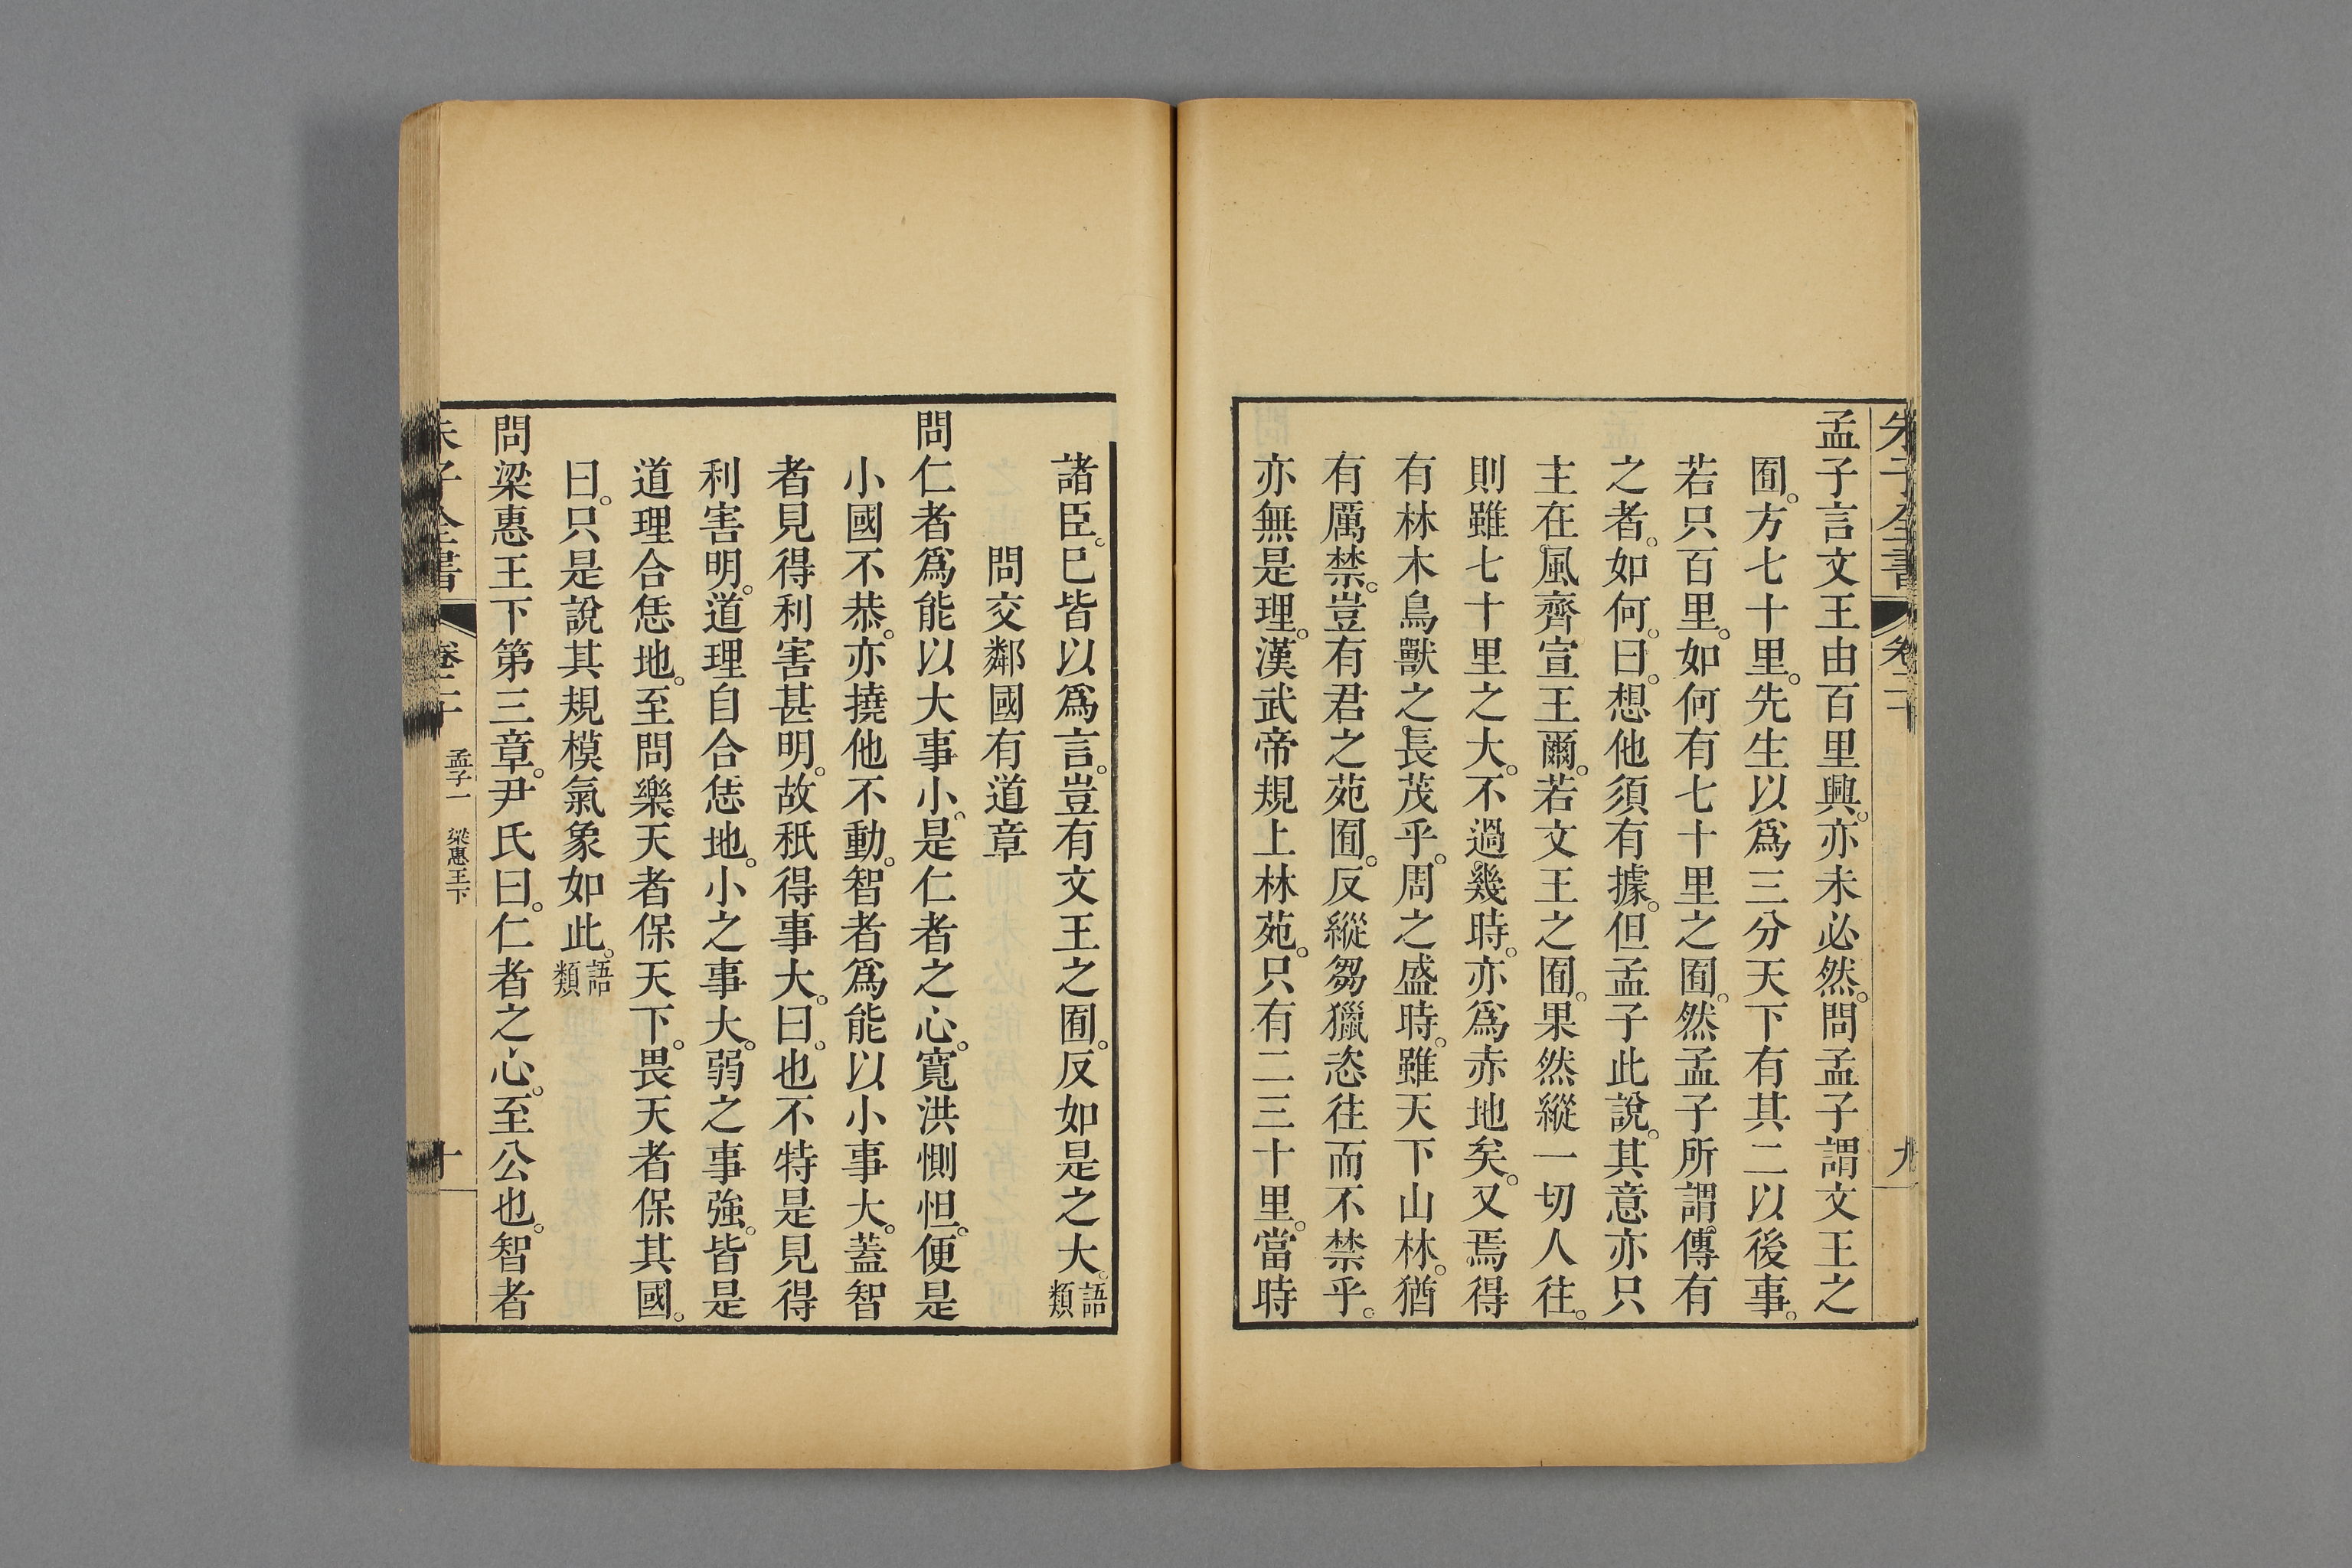 朱子全書 卷二十 九
孟子言文王由百里興。亦未必然。問孟子謂文王之
囿。方七十里。先生以爲三分天下有其二以後事。
若只百里。如何有七十里之囿。然孟子所謂傳有
之者。如何。曰。想他須有據。但孟子此說。其意亦只
主在風齊宣王爾。若文王之囿。果然縱一切人往。
則雖七十里之大。不過幾時。亦爲赤地矣。又焉得
有林木鳥獸之長茂乎。周之盛時。雖天下山林。猶
有厲禁。豈有君之苑囿。反縱芻獵恣往而不禁乎。
亦無是理。漢武帝規上林苑。只有二三十里。當時
諸臣。已皆以爲言。豈有文王之囿。反如是之大。語類
問交鄰國有道章
問仁者爲能以大事小。是仁者之心。寬洪惻怛。便是
小國不恭。亦撓他不動。智者爲能以小事大。蓋智
者見得利害甚明。故秖得事大。曰。也不特是見得
利害明。道理自合恁地。小之事大。弱之事強。皆是
道理合恁地。至問樂天者保天下。畏天者保其國。
曰。只是說其規模氣象如此。語類
問梁惠王下第三章。尹氏曰。仁者之心。至公也。智者
朱子全書 卷二十 孟子一 梁惠王下 十